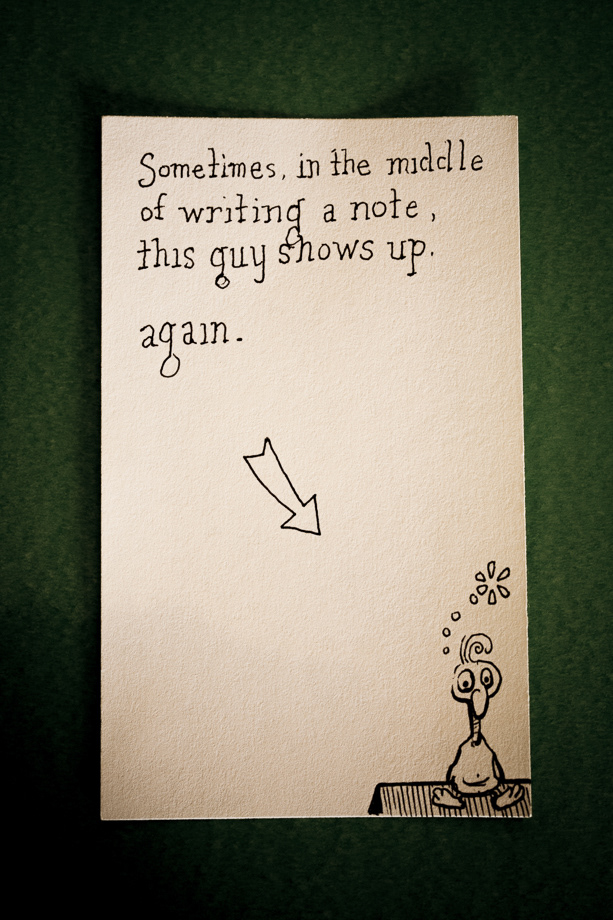 Sometimes, in the middle
of writing a note,
this guy shows up.
again.